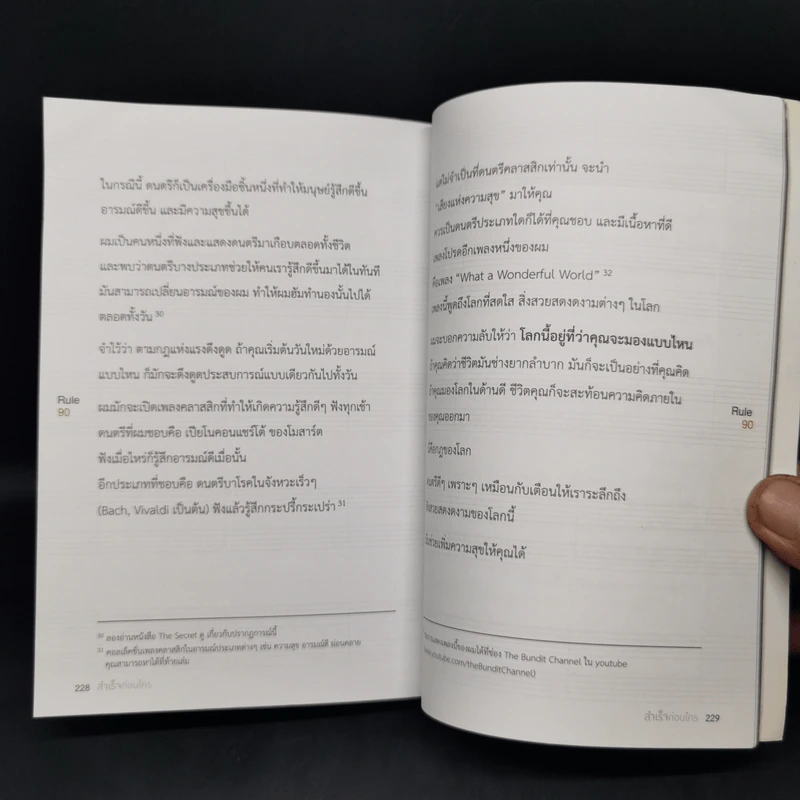 ในกรณีนี้ ดนตรีก็เป็นเครื่องมือชิ้นหนึ่งที่ทำให้มนุษย์รู้สึกดีขึ้น
อารมณ์ดีขึ้น และมีความสุขขึ้นได้
ผมเป็นคนหนึ่งที่ฟังและแสดงดนตรีมาเกือบตลอดทั้งชีวิต
และพบว่าดนตรีบางประเภทช่วยให้คนเรารู้สึกดีขึ้นมาได้ในทันที
มันสามารถเปลี่ยนอารมณ์ของผม ทำให้ผมฮัมทำนองนั้นไปได้
ตลอดทั้งวัน 30
จำไว้ว่า ตามกฎแห่งแรงดึงดูด ถ้าคุณเริ่มต้นวันใหม่ด้วยอารมณ์
แบบไหน ก็มักจะดึงดูดประสบการณ์แบบเดียวกันไปทั้งวัน
Rule
90
ผมมักจะเปิดเพลงคลาสสิกที่ทำให้เกิดความรู้สึกดีๆ ฟังทุกเช้า
ดนตรีที่ผมชอบคือ เปียโนคอนแชร์โต้ ของโมสาร์ต
ฟังเมื่อไหร่ก็รู้สึกอารมณ์ดีเมื่อนั้น
อีกประเภทที่ชอบคือ ดนตรีบาโรคในจังหวะเร็วๆ
(Bach, Vivaldi เป็นต้น) ฟังแล้วรู้สึกกระปรี้กระเปร่า 31
30 ลองอ่านหนังสือ The Secret ดู เกี่ยวกับปรากฏการณ์นี้
31 คอลเล็คชั่นเพลงคลาสสิกในอารมณ์ประเภทต่างๆ เช่น ความสุข อารมณ์ดี ผ่อนคลาย
คุณสามารถหาได้ที่ท้ายเล่ม
228 สำเร็จก่อนใคร
แต่ไม่จำเป็นที่ดนตรีคลาสสิกเท่านั้น จะนำ
"เสียงแห่งความสุข" มาให้คุณ
ควรเป็นดนตรีประเภทใดก็ได้ที่คุณชอบ และมีเนื้อหาที่ดี
เพลงโปรดอีกเพลงหนึ่งของผม
คือเพลง "What a Wonderful World" 32
เพลงนี้พูดถึงโลกที่สดใส สิ่งสวยสดงดงามต่างๆ ในโลก
และจะบอกความลับให้ว่า โลกนี้อยู่ที่ว่าคุณจะมองแบบไหน
ถ้าคุณคิดว่าชีวิตมันช่างยากลำบาก มันก็จะเป็นอย่างที่คุณคิด
ถ้าคุณมองโลกในด้านดี ชีวิตคุณก็จะสะท้อนความคิดภายใน
ของคุณออกมา
Rule
90
นี่คือกฎของโลก
ดนตรีดีๆ เพราะๆ เหมือนกับเตือนให้เราระลึกถึง
สวยสดงดงามของโลกนี้
ช่วยเพิ่มความสุขให้คุณได้
เพลงนี้ของผมได้ที่ช่อง The Bundit Channel ใน youtube
youtube.com/theBunditChannel)
สำเร็จก่อนใคร 229